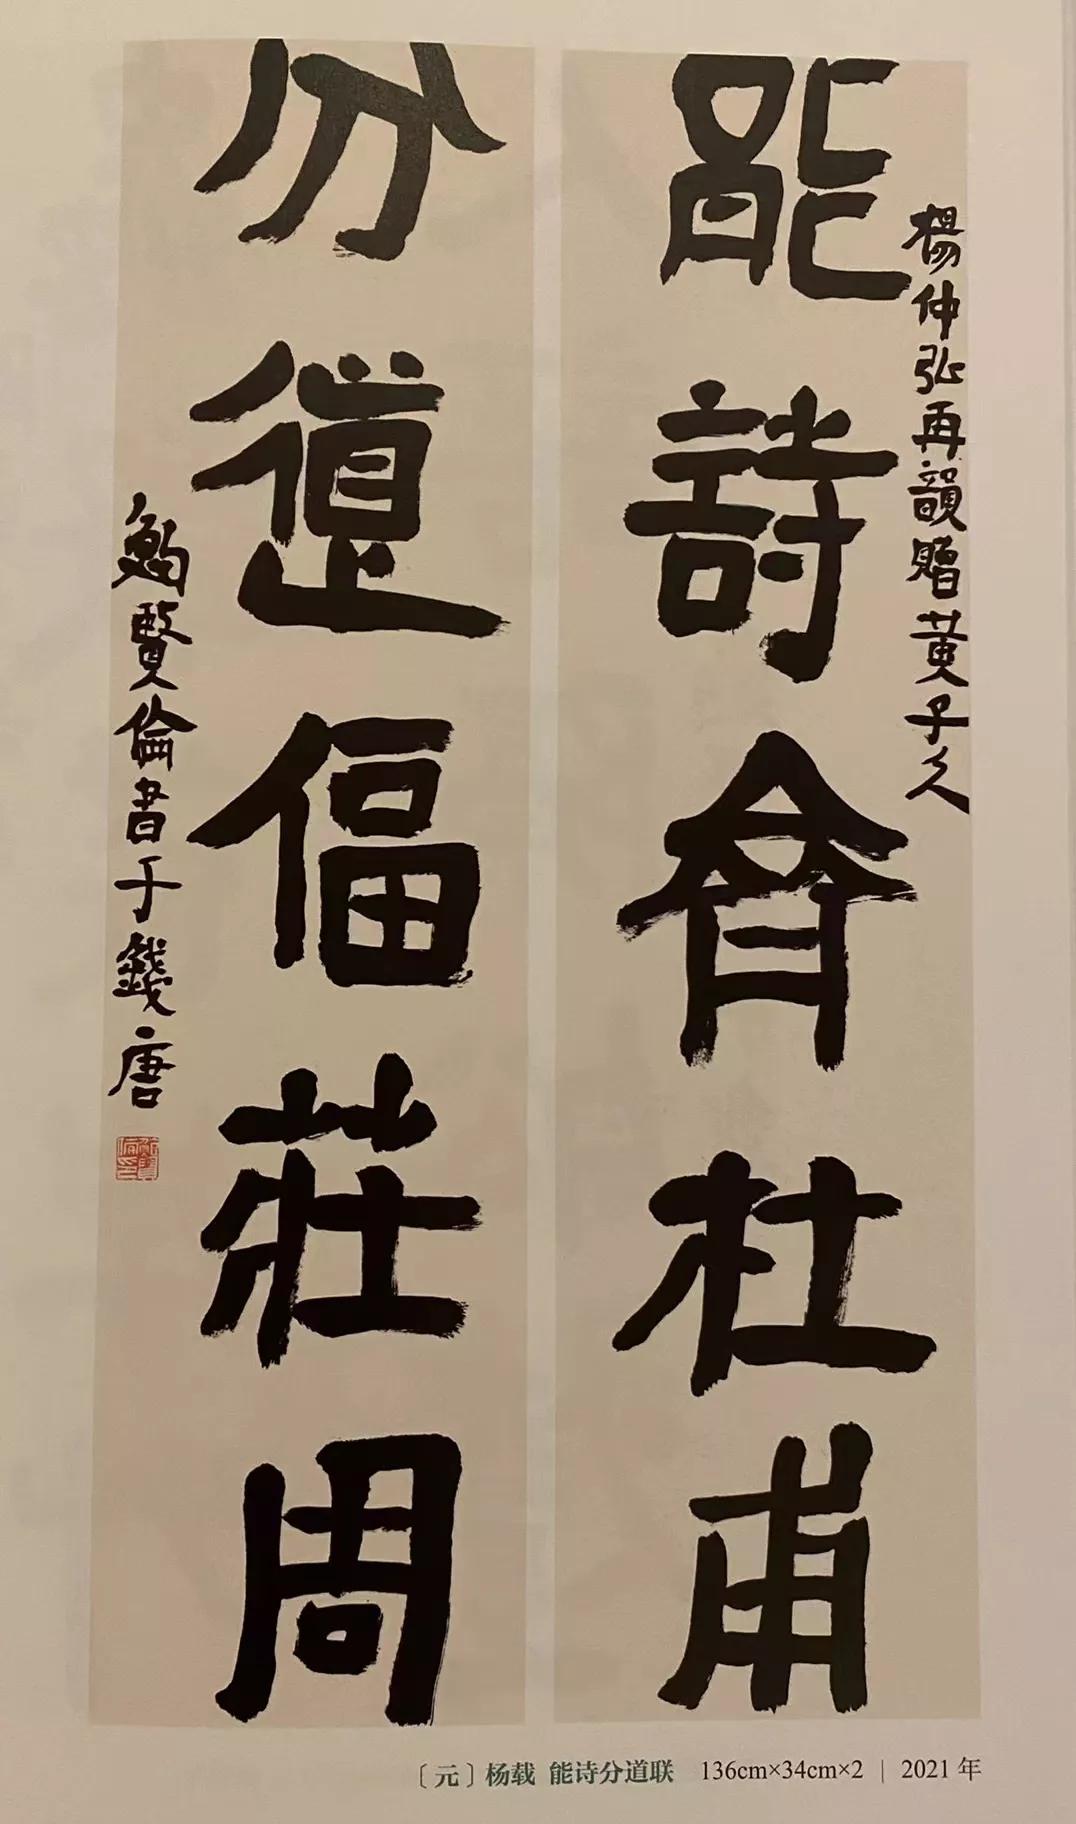 楊仲弘再韻贈黄子久
能詩齊杜甫
分道偪莊周
鮑賢倫書于錢唐
〔元〕杨载 能诗分道联 136cm×34cm×2 | 2021年